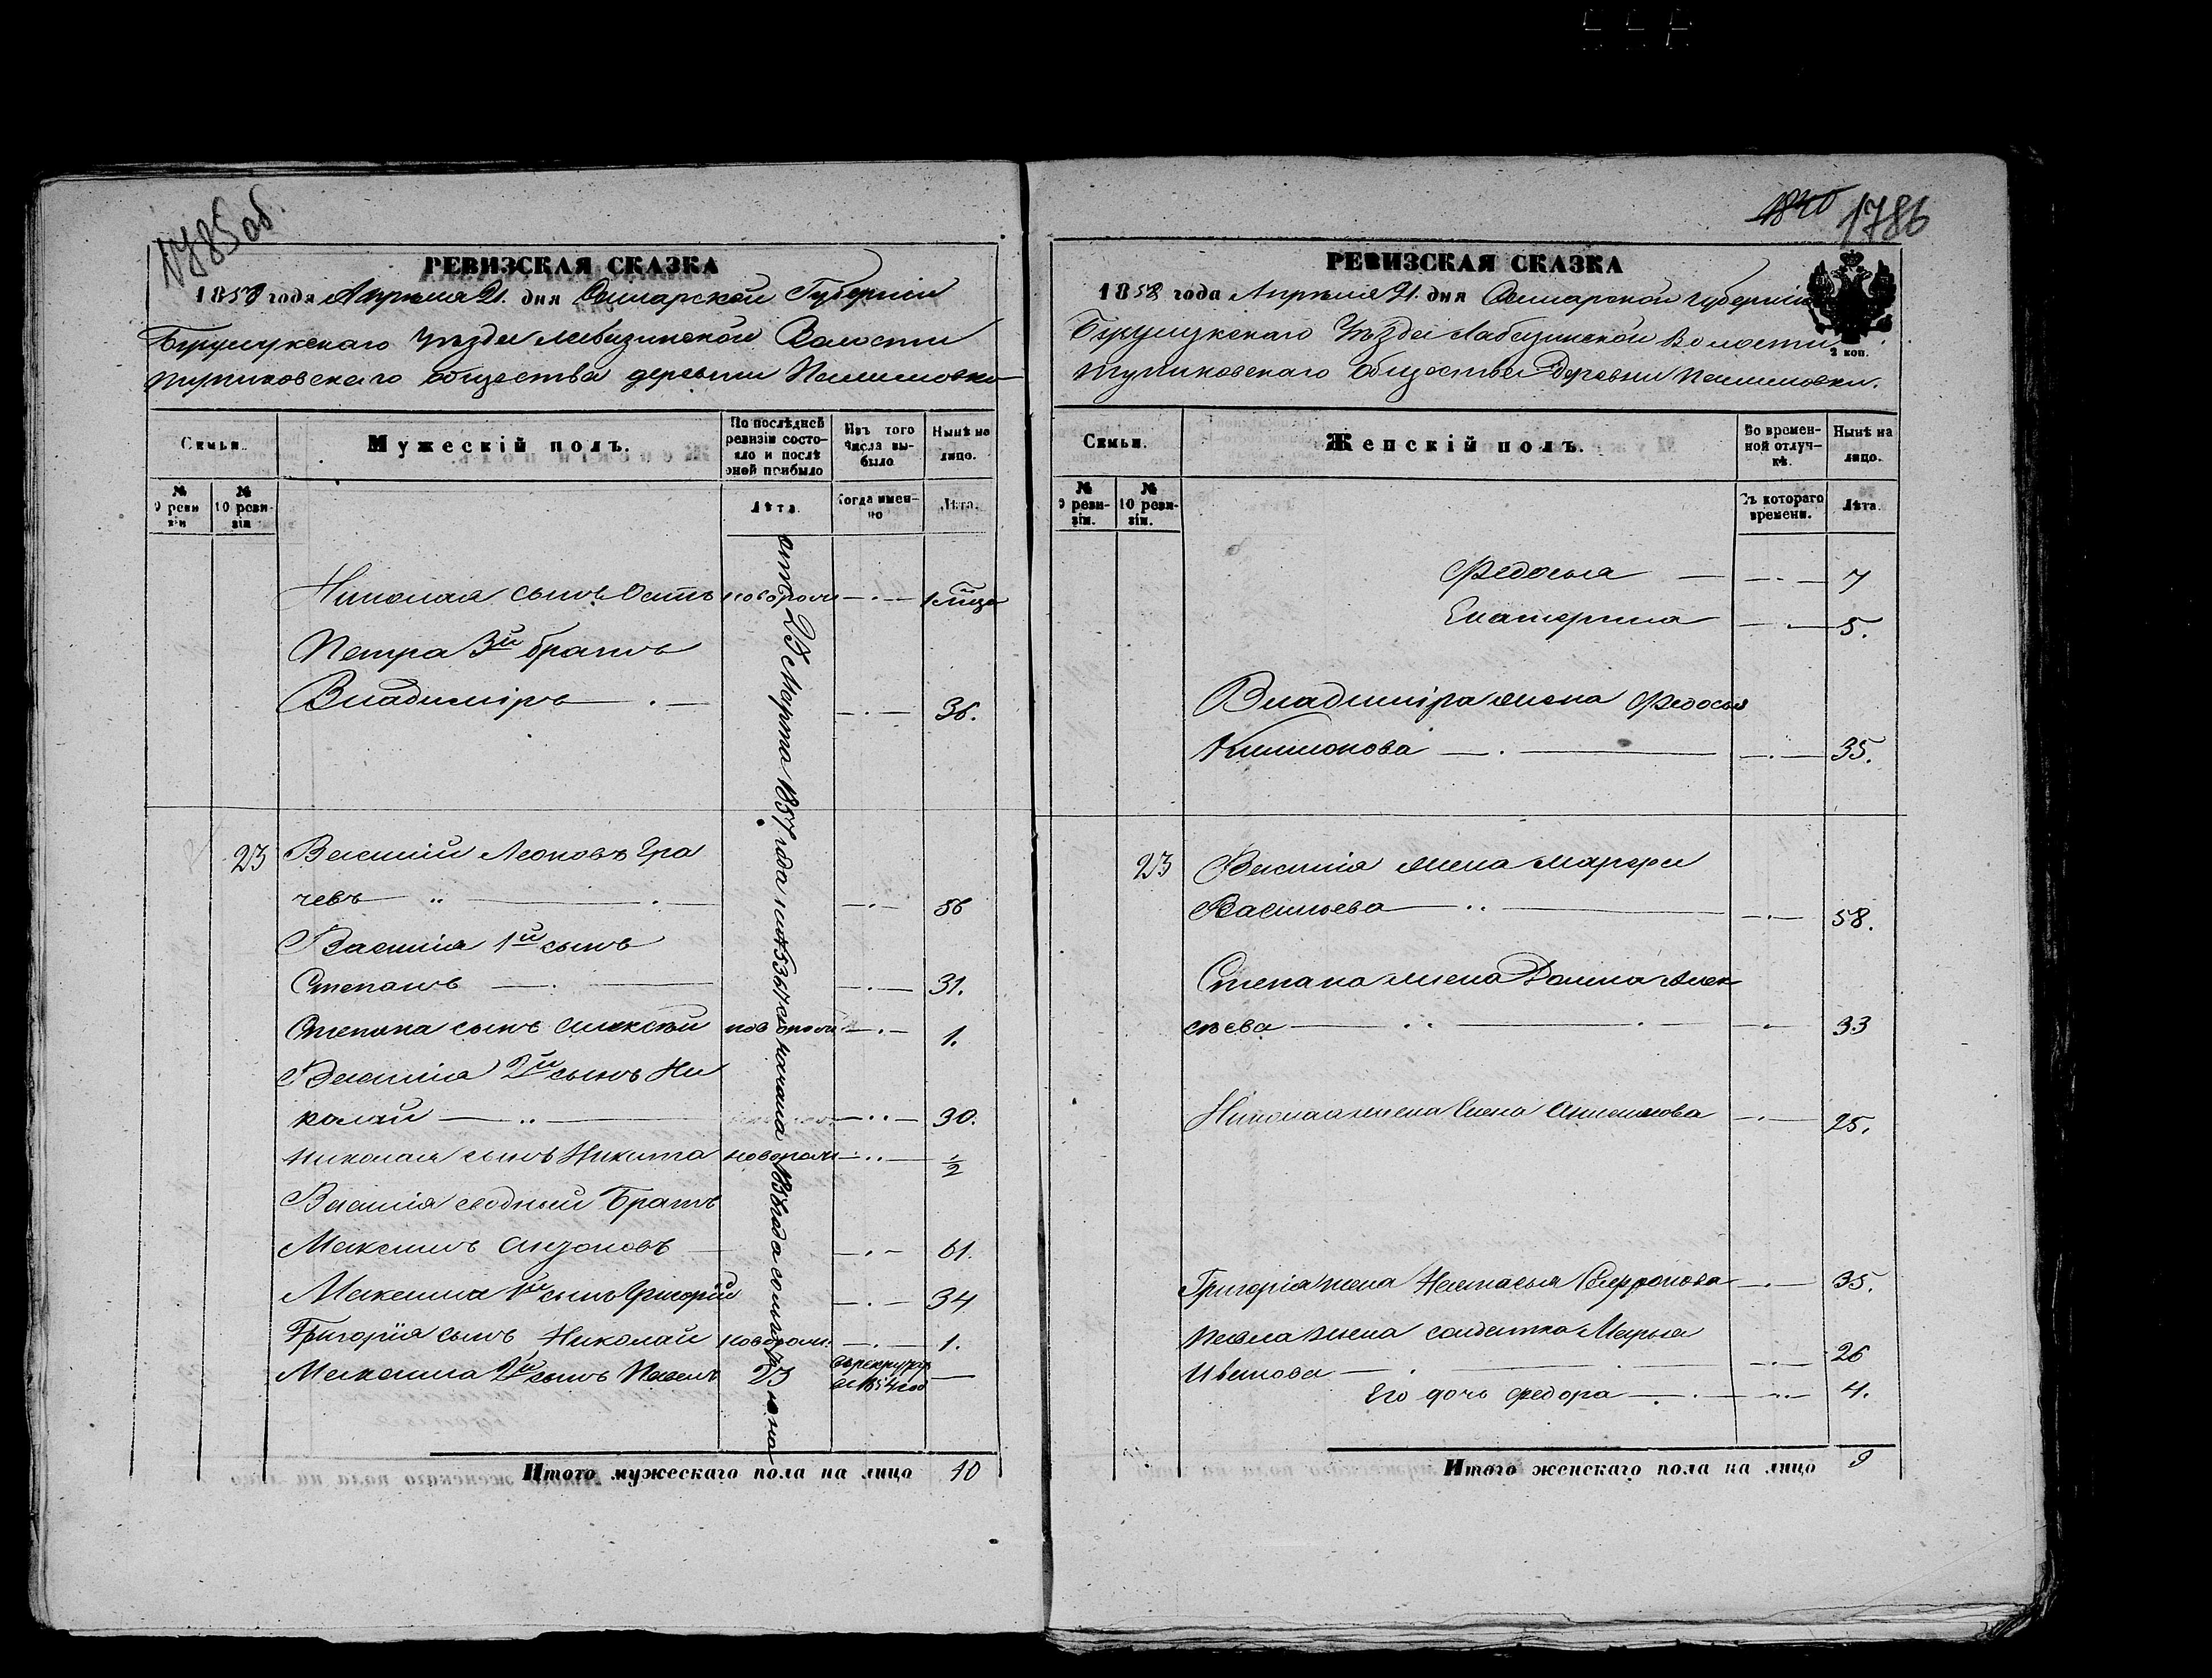 1785 об.
РЕВИЗСКАЯ СКАЗКА
1858 года Апреля 21. дня Самарской Губерніи
Бузулукскаго Уезда Лабазинской Волости
общества деревни
Семьи.
Мужескій полъ.
По послѣдней ревизіи состояло и послѣ оной прибыло
Изъ того числа выбыло
Нынѣ на лицо.
№ 9 ревизіи
№ 10 ревизіи
Лѣта.
Когда именно
Лѣта.
Николая сынъ новорож
Петра 3й братъ
Владиміръ 36.
23 Василій Леоновъ Гра
чевъ 56
Василія 1й сынъ
Степанъ 31.
Степана сынъ Алексѣй новорож 1.
Василія 2й сынъ Ни
колай 30.
Николая сынъ Никита новорож ½
Василія сводный Братъ
Максимъ 61.
Максима 1й сынъ Григорій 34
Григорія сынъ Николай новорож. 1.
Максима 2й сынъ Павелъ 23 въ рекруты въ 1854 год —
Итого мужескаго пола на лицо 10
1840 1786
РЕВИЗСКАЯ СКАЗКА
1858 года Апреля 21. дня Самарской Губерніи
Бузулукскаго Уѣзда Лабазинской Волости
Общества Деревни
2 коп.
Семьи.
Женскій полъ.
Во временной отлучкѣ.
Нынѣ на лицо.
№ 9 ревизіи.
№ 10 ревизіи.
Съ котораго времени.
Лѣта.
Федосья 7
Екатерина 5.
Владиміра жена Федосья
35.
23 Василія жена Марфа
Васильева 58.
Степана жена Домна Алек
сѣева 33
Николая жена Елена Анисимова 25.
Григорія жена Настасья 35.
Павла жена солдатка Марья
Иванова 26
Его дочь Федора 4.
Итого женскаго пола на лицо 9